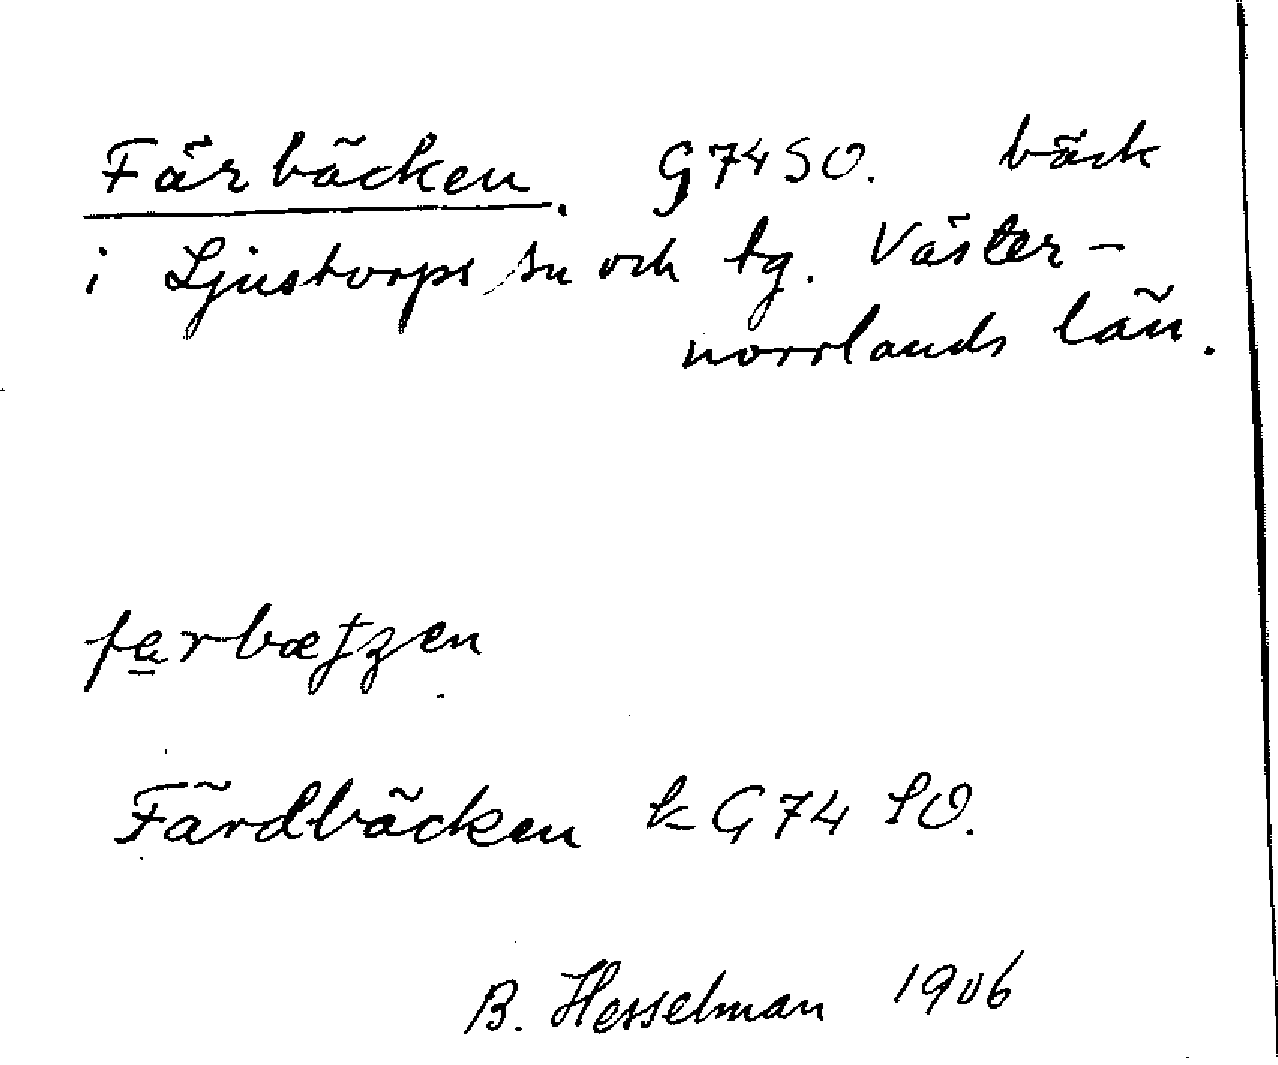 Färbäcken. G74SO. bäck
i Ljustorps sn och tg. Väster-
norrlands län.
Färdbäcken k G74 SO.
B. Hesselman 1906